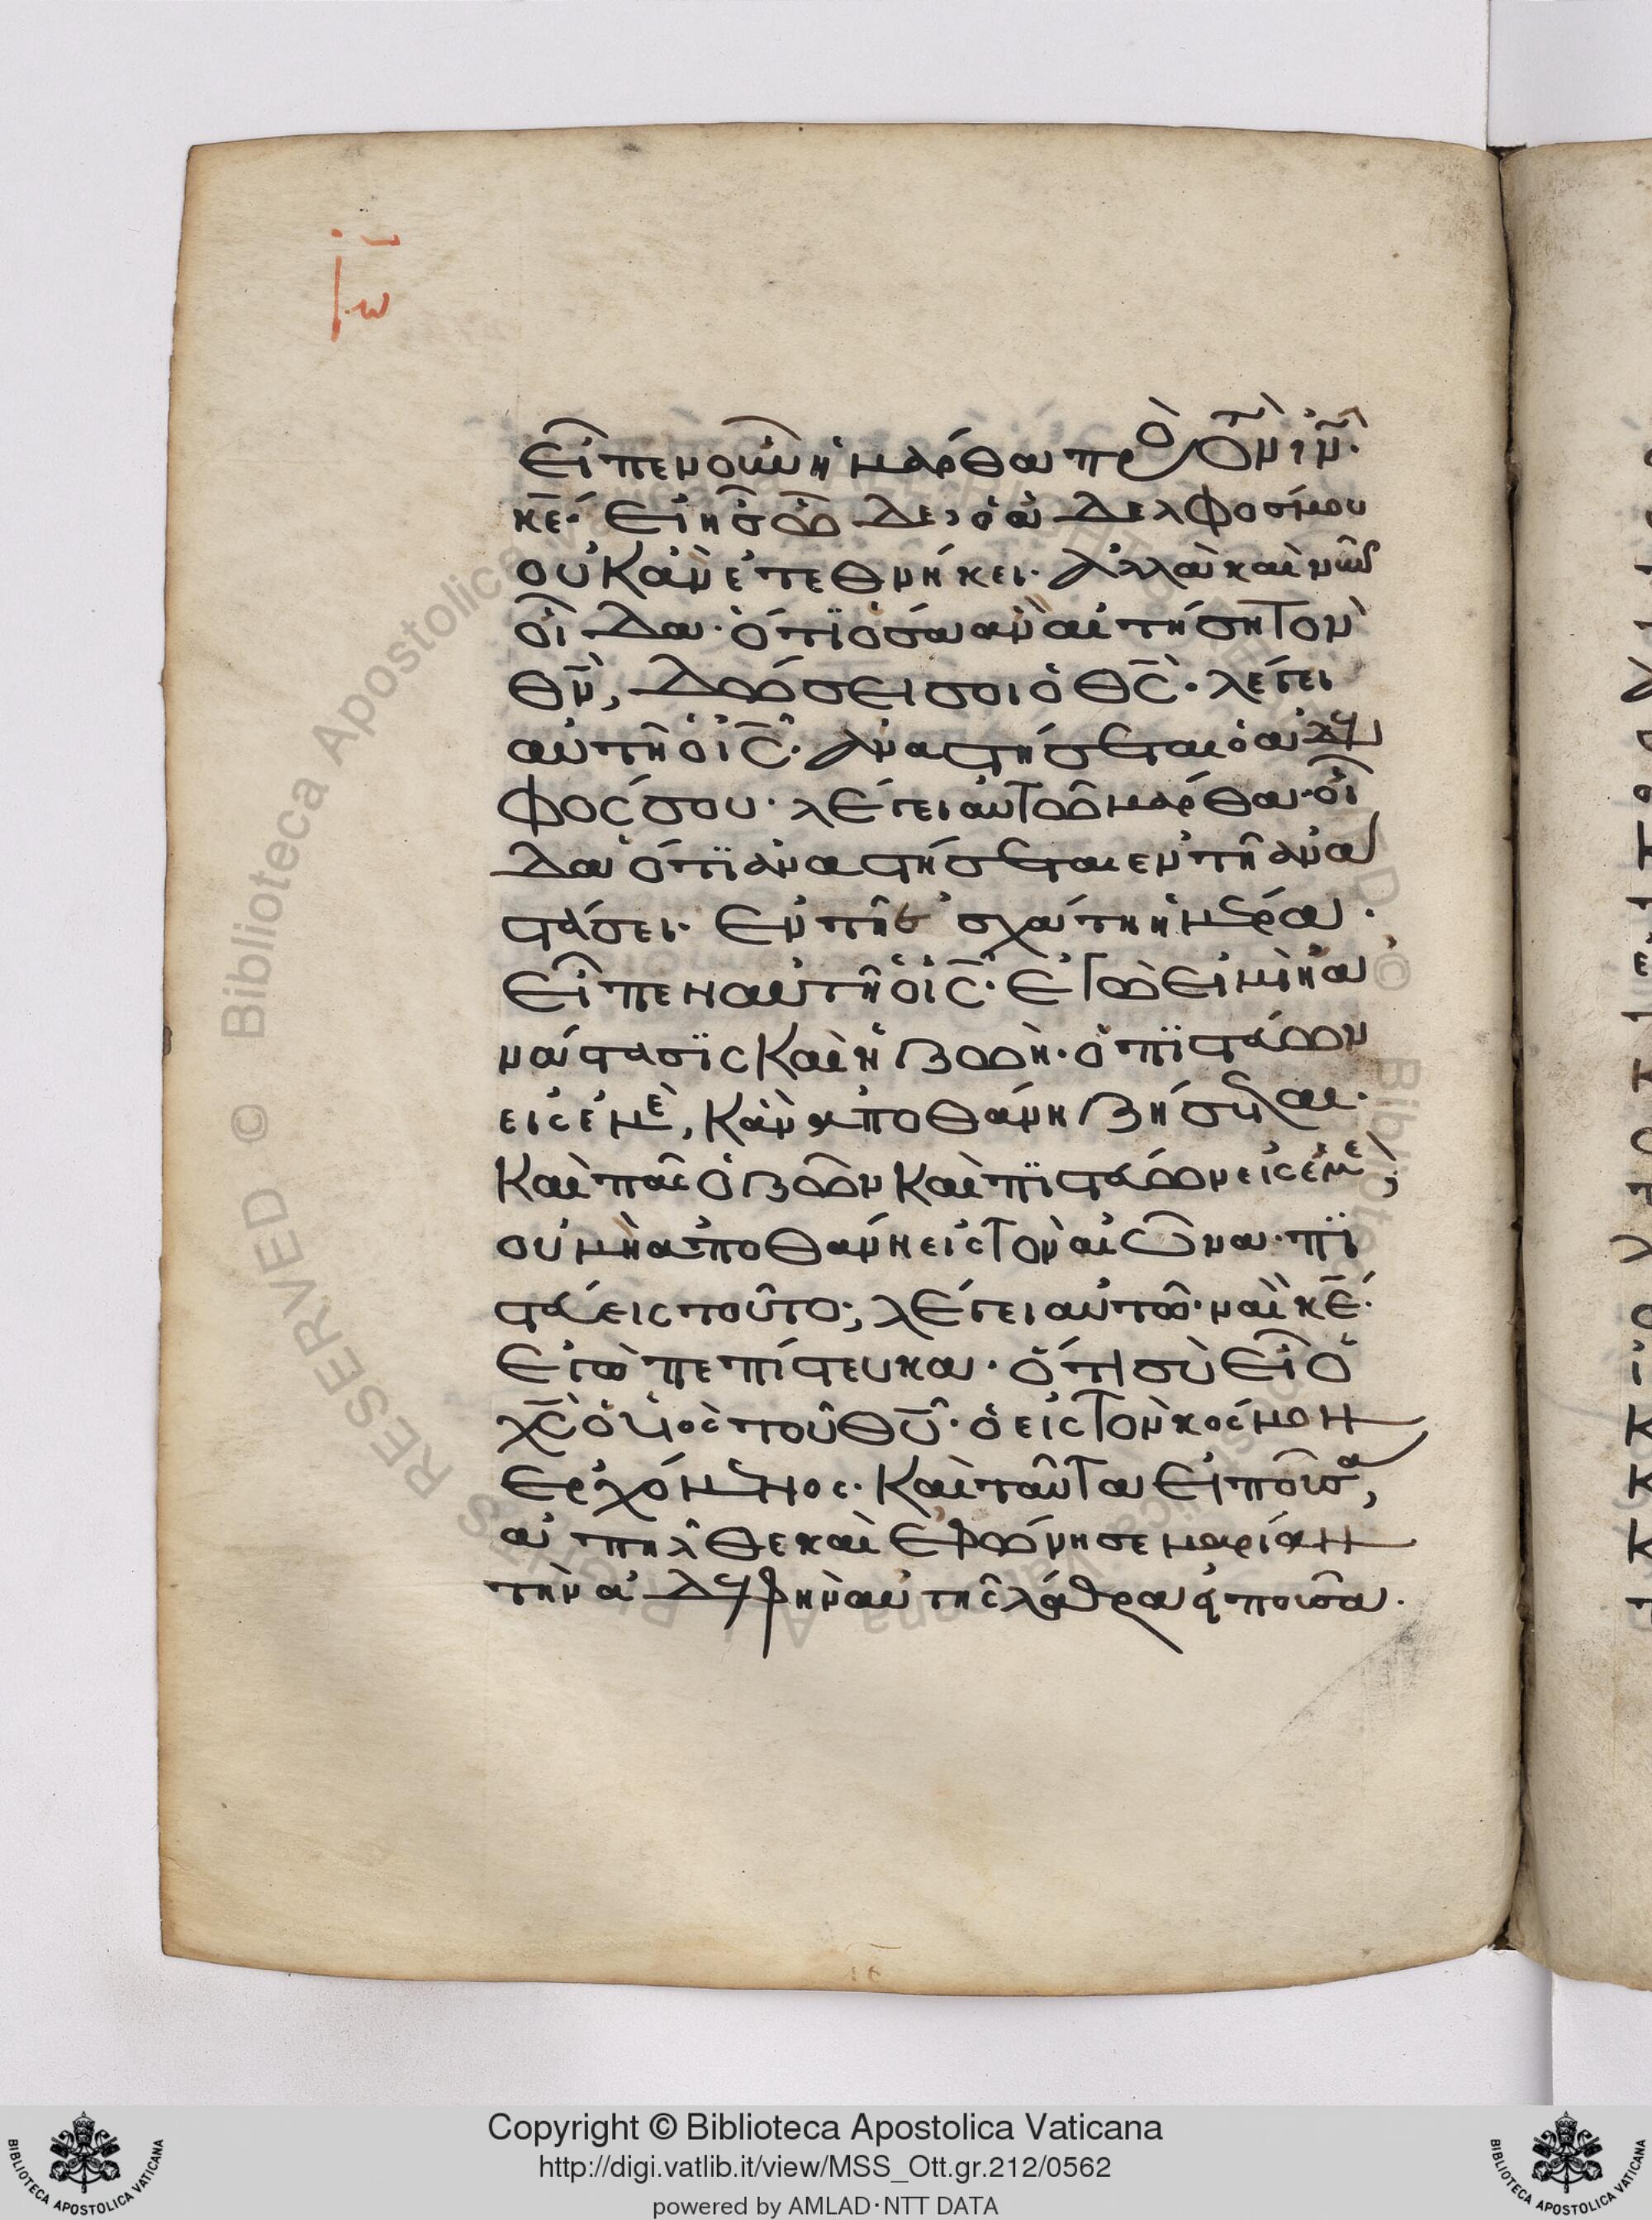 ιω̄
εἶπεν οὖν ἡ μάρθα πρὸς τὸν ι̅ν̅·
κ̅ε̅· εἰ ἦς ὧδε, ὁ ἀδελφός μου
οὐκ ἂν ἐτεθνήκει· ἀλλὰ καὶ νῦν
οἶδα· ὅτι ὅσα ἂν αἰτήση τὸν
θ̅ν̅, δώσει σοι ὁ θ̅ς̅· λέγει
αὐτῆ ὁ ι̅ς̅· ἀναστήσεται ὁ ἀδελ
φός σου· λέγει αὐτῶ μάρθα· οἶ
δα ὅτι ἀναστήσεται ἐν τῆ ἀνα
στάσει· ἐν τῆ ἐσχάτη ἡμέρα·
εἶπεν αὐτῆ ὁ ι̅ς̅· ἐγώ εἰμι ἡ ἀ
νάστασϊς καὶ ἡ ζωή· ὁ πϊστεύων
εἰς ἐμὲ, κἂν ἀποθάνη ζήσεται·
καὶ πᾶς ὁ ζῶν καὶ πϊστεύων εἰς ἐμὲ,
οὐ μὴ ἀποθάνη εἰς τὸν αἰῶνα· πϊ
στεύεις τοῦτο; λέγει αὐτῶ· ναὶ κ̅ε̅·
ἐγὼ πεπίστευκα· ὅτι σὺ εἶ ὁ
χ̅ς̅ ὁ υἱὸς τοῦ θ̅υ̅· ὁ εἰς τὸν κόσμον
ἐρχόμενος· καὶ ταῦτα εἰποῦσα,
ἀπῆλθε καὶ ἐφώνησε μαρίαν
τὴν ἀδελφὴν αὐτῆς λάθρα εἰποῦσα·
Copyright © Biblioteca Apostolica Vaticana
http://digi.vatlib.it/view/MSS_Ott.gr.212/0562
powered by AMLAD·NTT DATA
BIBLIOTECA APOSTOLICA VATICANA
BIBLIOTECA APOSTOLICA VATICANA